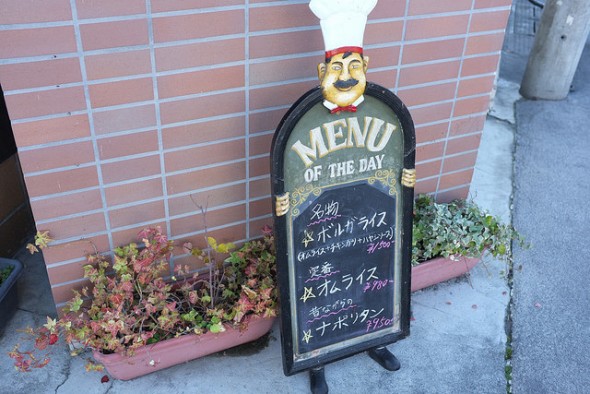 MENU
OF THE DAY
名物
ボルガライス
(オムライス+チキンカツ+ハヤシソース)
¥1,500-
定番
オムライス ¥980-
昔ながらの
ナポリタン
¥950-